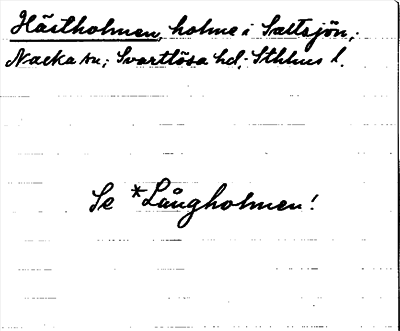 Hästholmen, holme i Saltsjön,
Nacka sn; Svartlösa hd; Sthlms l.
Se *Långholmen!